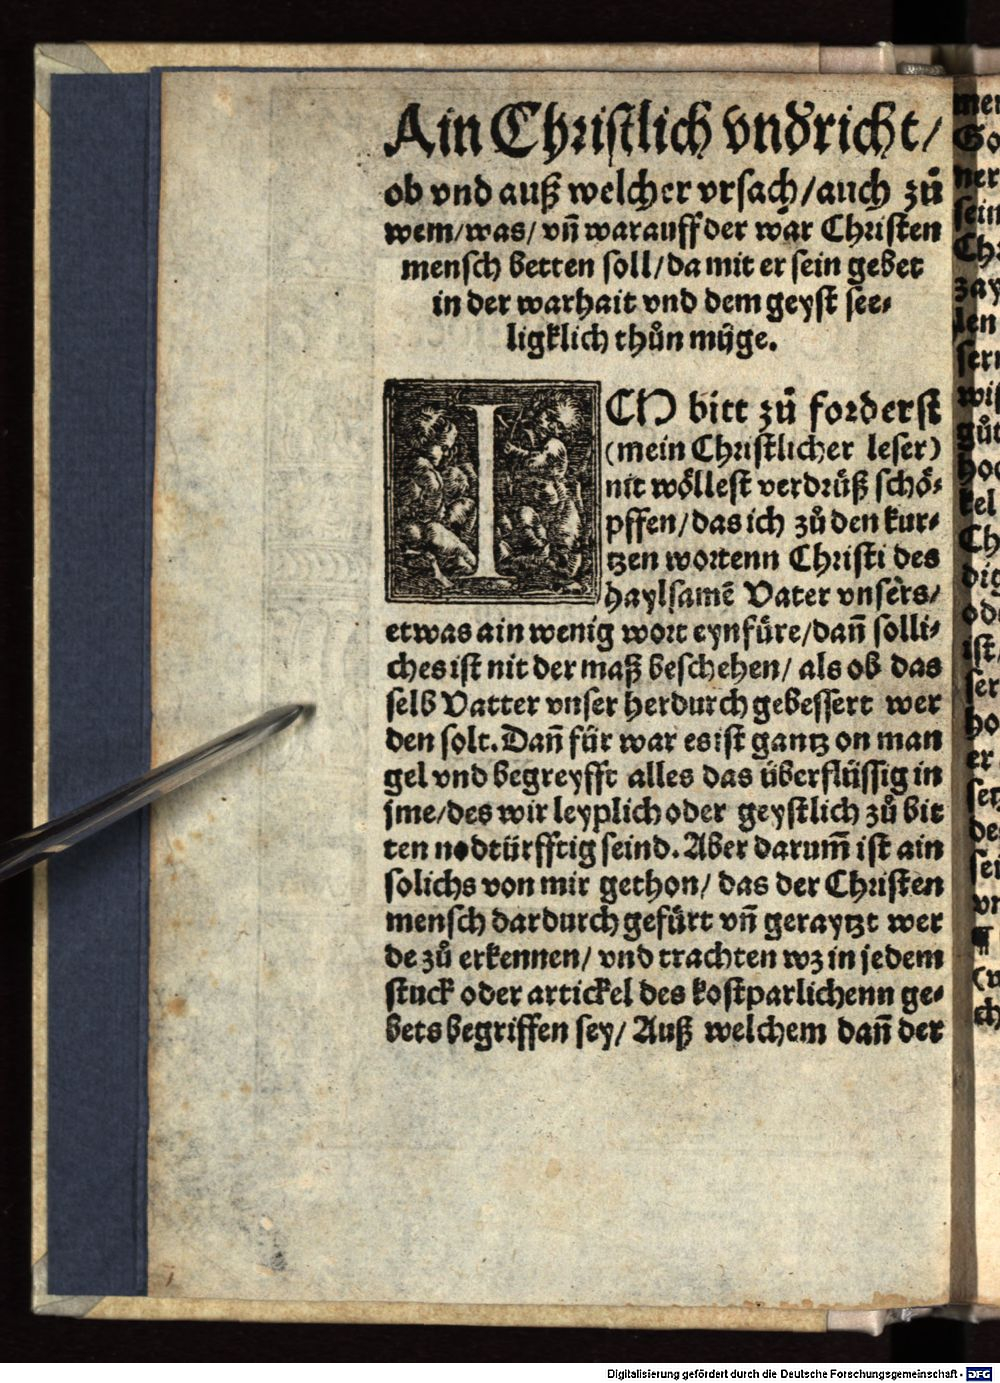 Ain Christlich vnd̕richt/
ob vnd auß welcher vrsach/auch zů
wem/was/ vñ warauff der war Christen
mensch betten soll/da mit er sein gebet
in der warhait vnd dem geyst see⸗
ligklich thůn müge.
ICH bitt zů forderst
(mein Christlicher leser)
nit wöllest verdrüß schö⸗
pffen/das ich zů den kur⸗
tzen wortenn Christi des
haylsamē Vater vnsers/
etwas ain wenig wort eynfüre/dañ solli⸗
ches ist nit der maß beschehen/ als ob das
selb Vatter vnser herdurch gebessert wer
den solt. Dañ für war es ist gantz on man
gel vnd begreyfft alles das überflüssig in
jme/des wir leyplich oder geystlich zů bit
ten nodtürfftig seind. Aber darum̃ ist ain
solichs von mir gethon/ das der Christen
mensch dardurch gefürt vñ geraytzt wer
de zů erkennen/ vnd trachten wz in jedem
stuck oder artickel des kostparlichenn ge⸗
bets begriffen sey/ Auß welchem dañ der
Digitalisierung gefördert durch die Deutsche Forschungsgemeinschaft - DFG